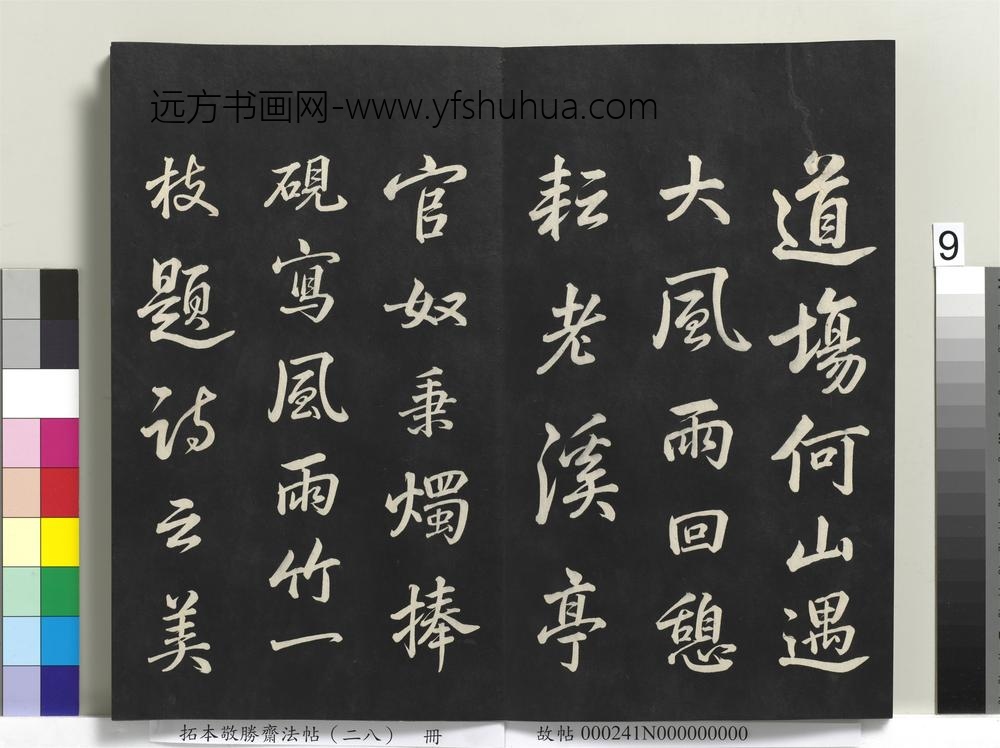 远方书画网-www.yfshuhua.com
道場何山遇
大風雨回憩
耘老溪亭
官奴秉燭捧
硯寫風雨竹一
枝題詩云美
9
拓本敬勝齋法帖（二八） 冊
故帖 000241N000000000